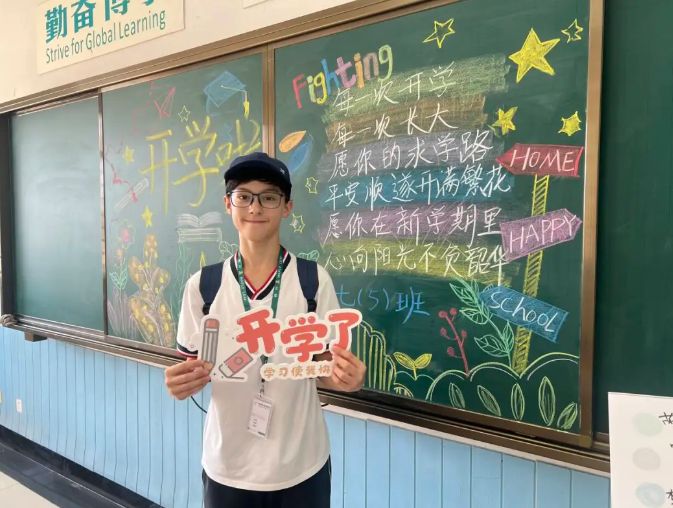 勤奋博学
Strive for Global Learning
开学啦
Fighting
每一次开学
每一次长大
愿你的求学路
平安顺遂开满繁花
愿你在新学期里
心向阳光不负韶华
七(5)班
HOME
HAPPY
SCHOOL
开学了